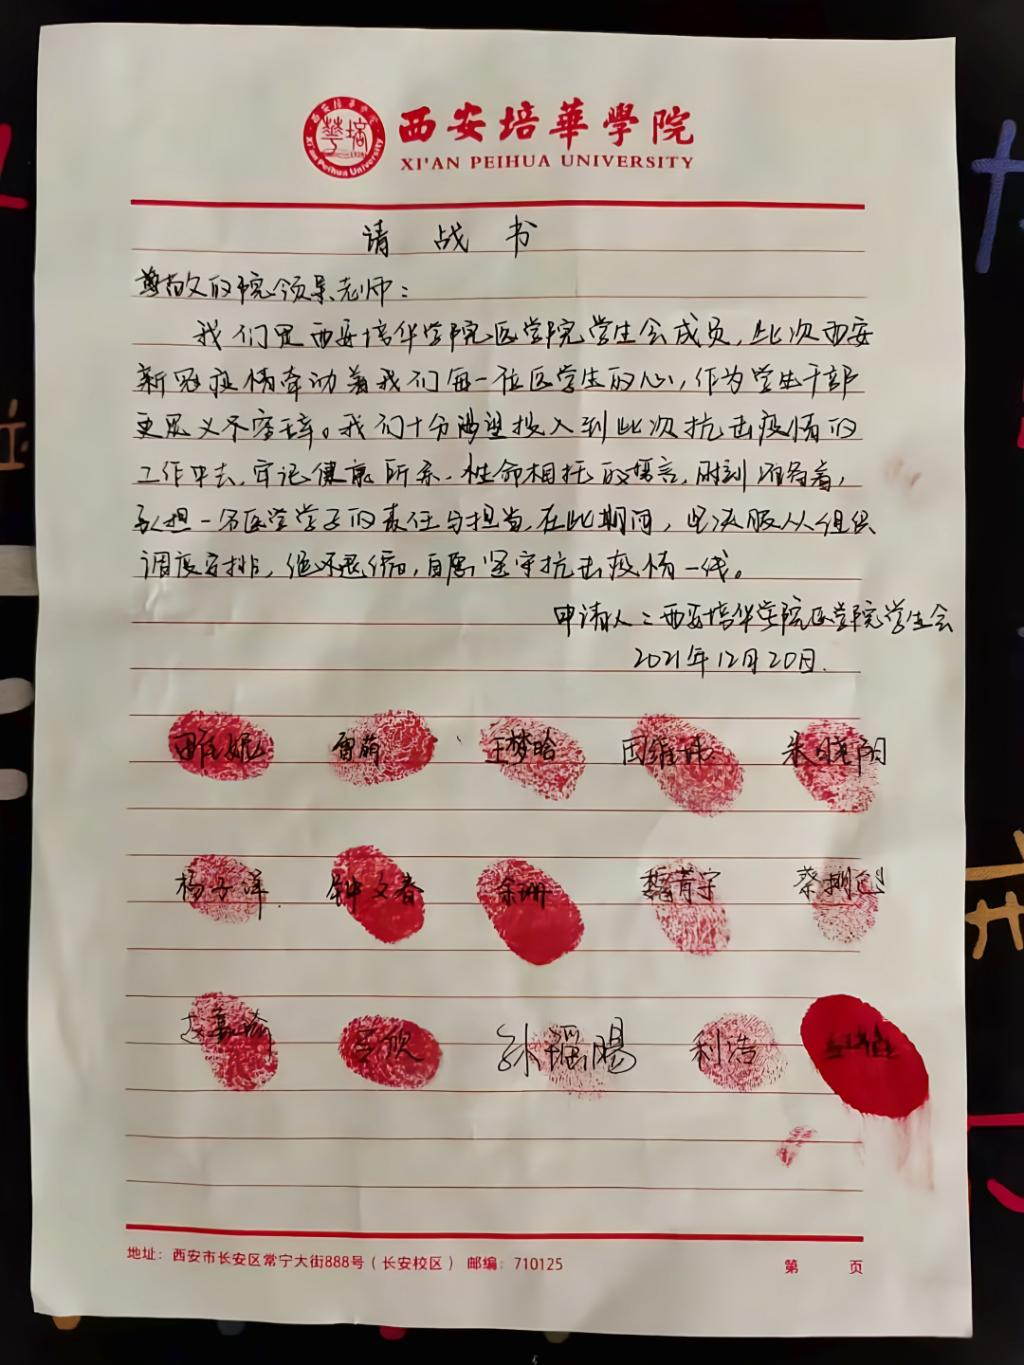 西安培華學院
XI'AN PEIHUA UNIVERSITY
请战书
尊敬的院领导老师:
我们是西安培华学院医学院学生会成员,此次西安
新冠疫情牵动着我们每一位医学生的心,作为学生干部
更是义不容辞。我们十分渴望投入到此次抗击疫情的
工作中去,牢记健康所系,性命相托的誓言,时刻准备着,
承担一名医学学子的责任与担当,在此期间,坚决服从组织
调度安排,绝不退缩,自愿坚守抗击疫情一线。
申请人:西安培华学院医学院学生会
2021年12月20日.
雷萌 王梦晗 田维 朱晓阳
杨子洋 钟文春 余珊 魏菁宇 蔡
赵嘉 欣 孙瑶腸 利浩
地址:西安市长安区常宁大街888号(长安校区) 邮编:710125
第 页